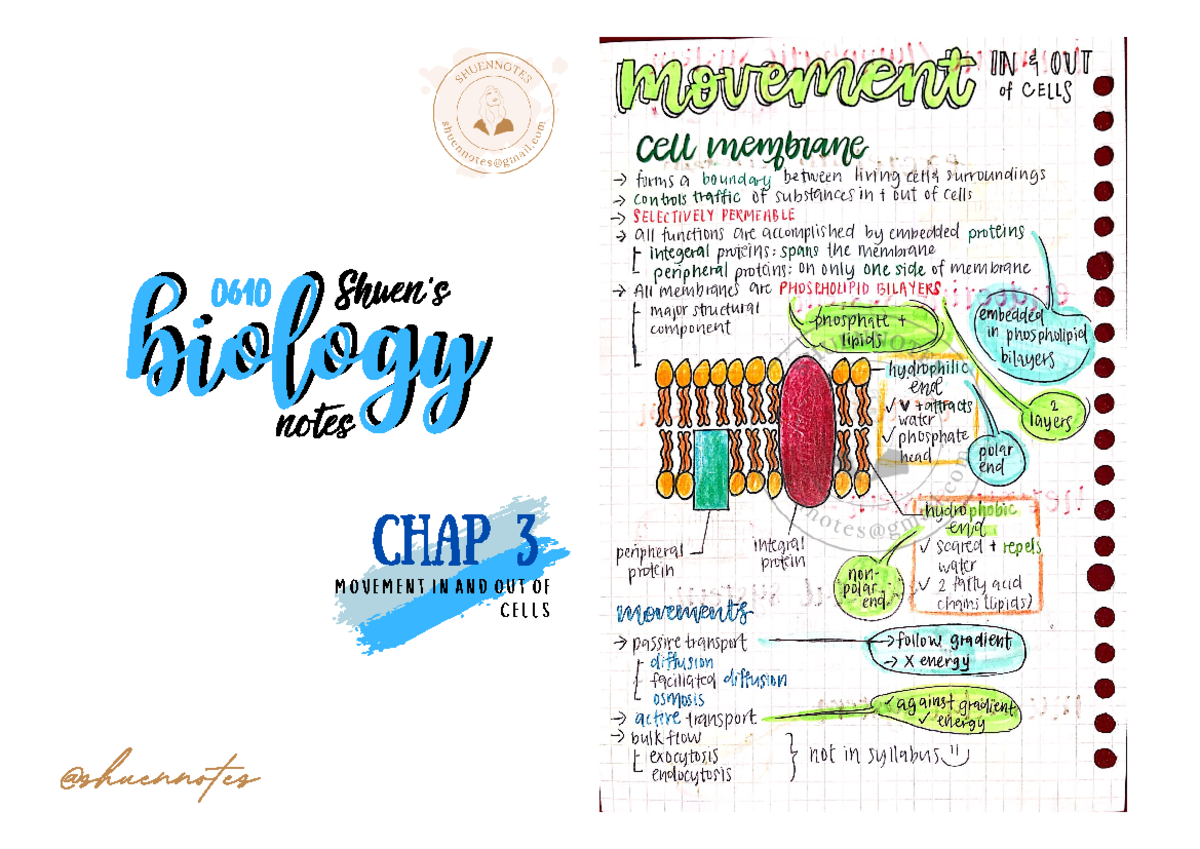 SHUENNOTES
shuennotes@gmail.com
0610 Shuen's
biology
notes
CHAP 3
MOVEMENT IN AND OUT OF
CELLS
@shuennotes
movement IN & OUT
of CELLS
cell membrane
→ forms a boundary between living cell & surroundings
→ controls traffic of substances in + out of cells
→ SELECTIVELY PERMEABLE
→ all functions are accomplished by embedded proteins
integeral proteins: spans the membrane
peripheral proteins: on only one side of membrane
→ All membranes are PHOSPHOLIPID BILAYERS
major structural
component
phosphate +
lipids
embedded
in phospholipid
bilayers
2
layers
hydrophilic
end
✓ ♥ + attracts
water
✓ phosphate
head
polar
end
hydrophobic
end
✓ scared + repels
water
✓ 2 fatty acid
chains (lipids)
non-
polar
end
peripheral
protein
integral
protein
movements
→ passive transport
diffusion
faciliated diffusion
osmosis
→ follow gradient
→ X energy
→ active transport
✓ against gradient
✓ energy
→ bulk flow
exocytosis
endocytosis
not in syllabus
notes@gmail.com